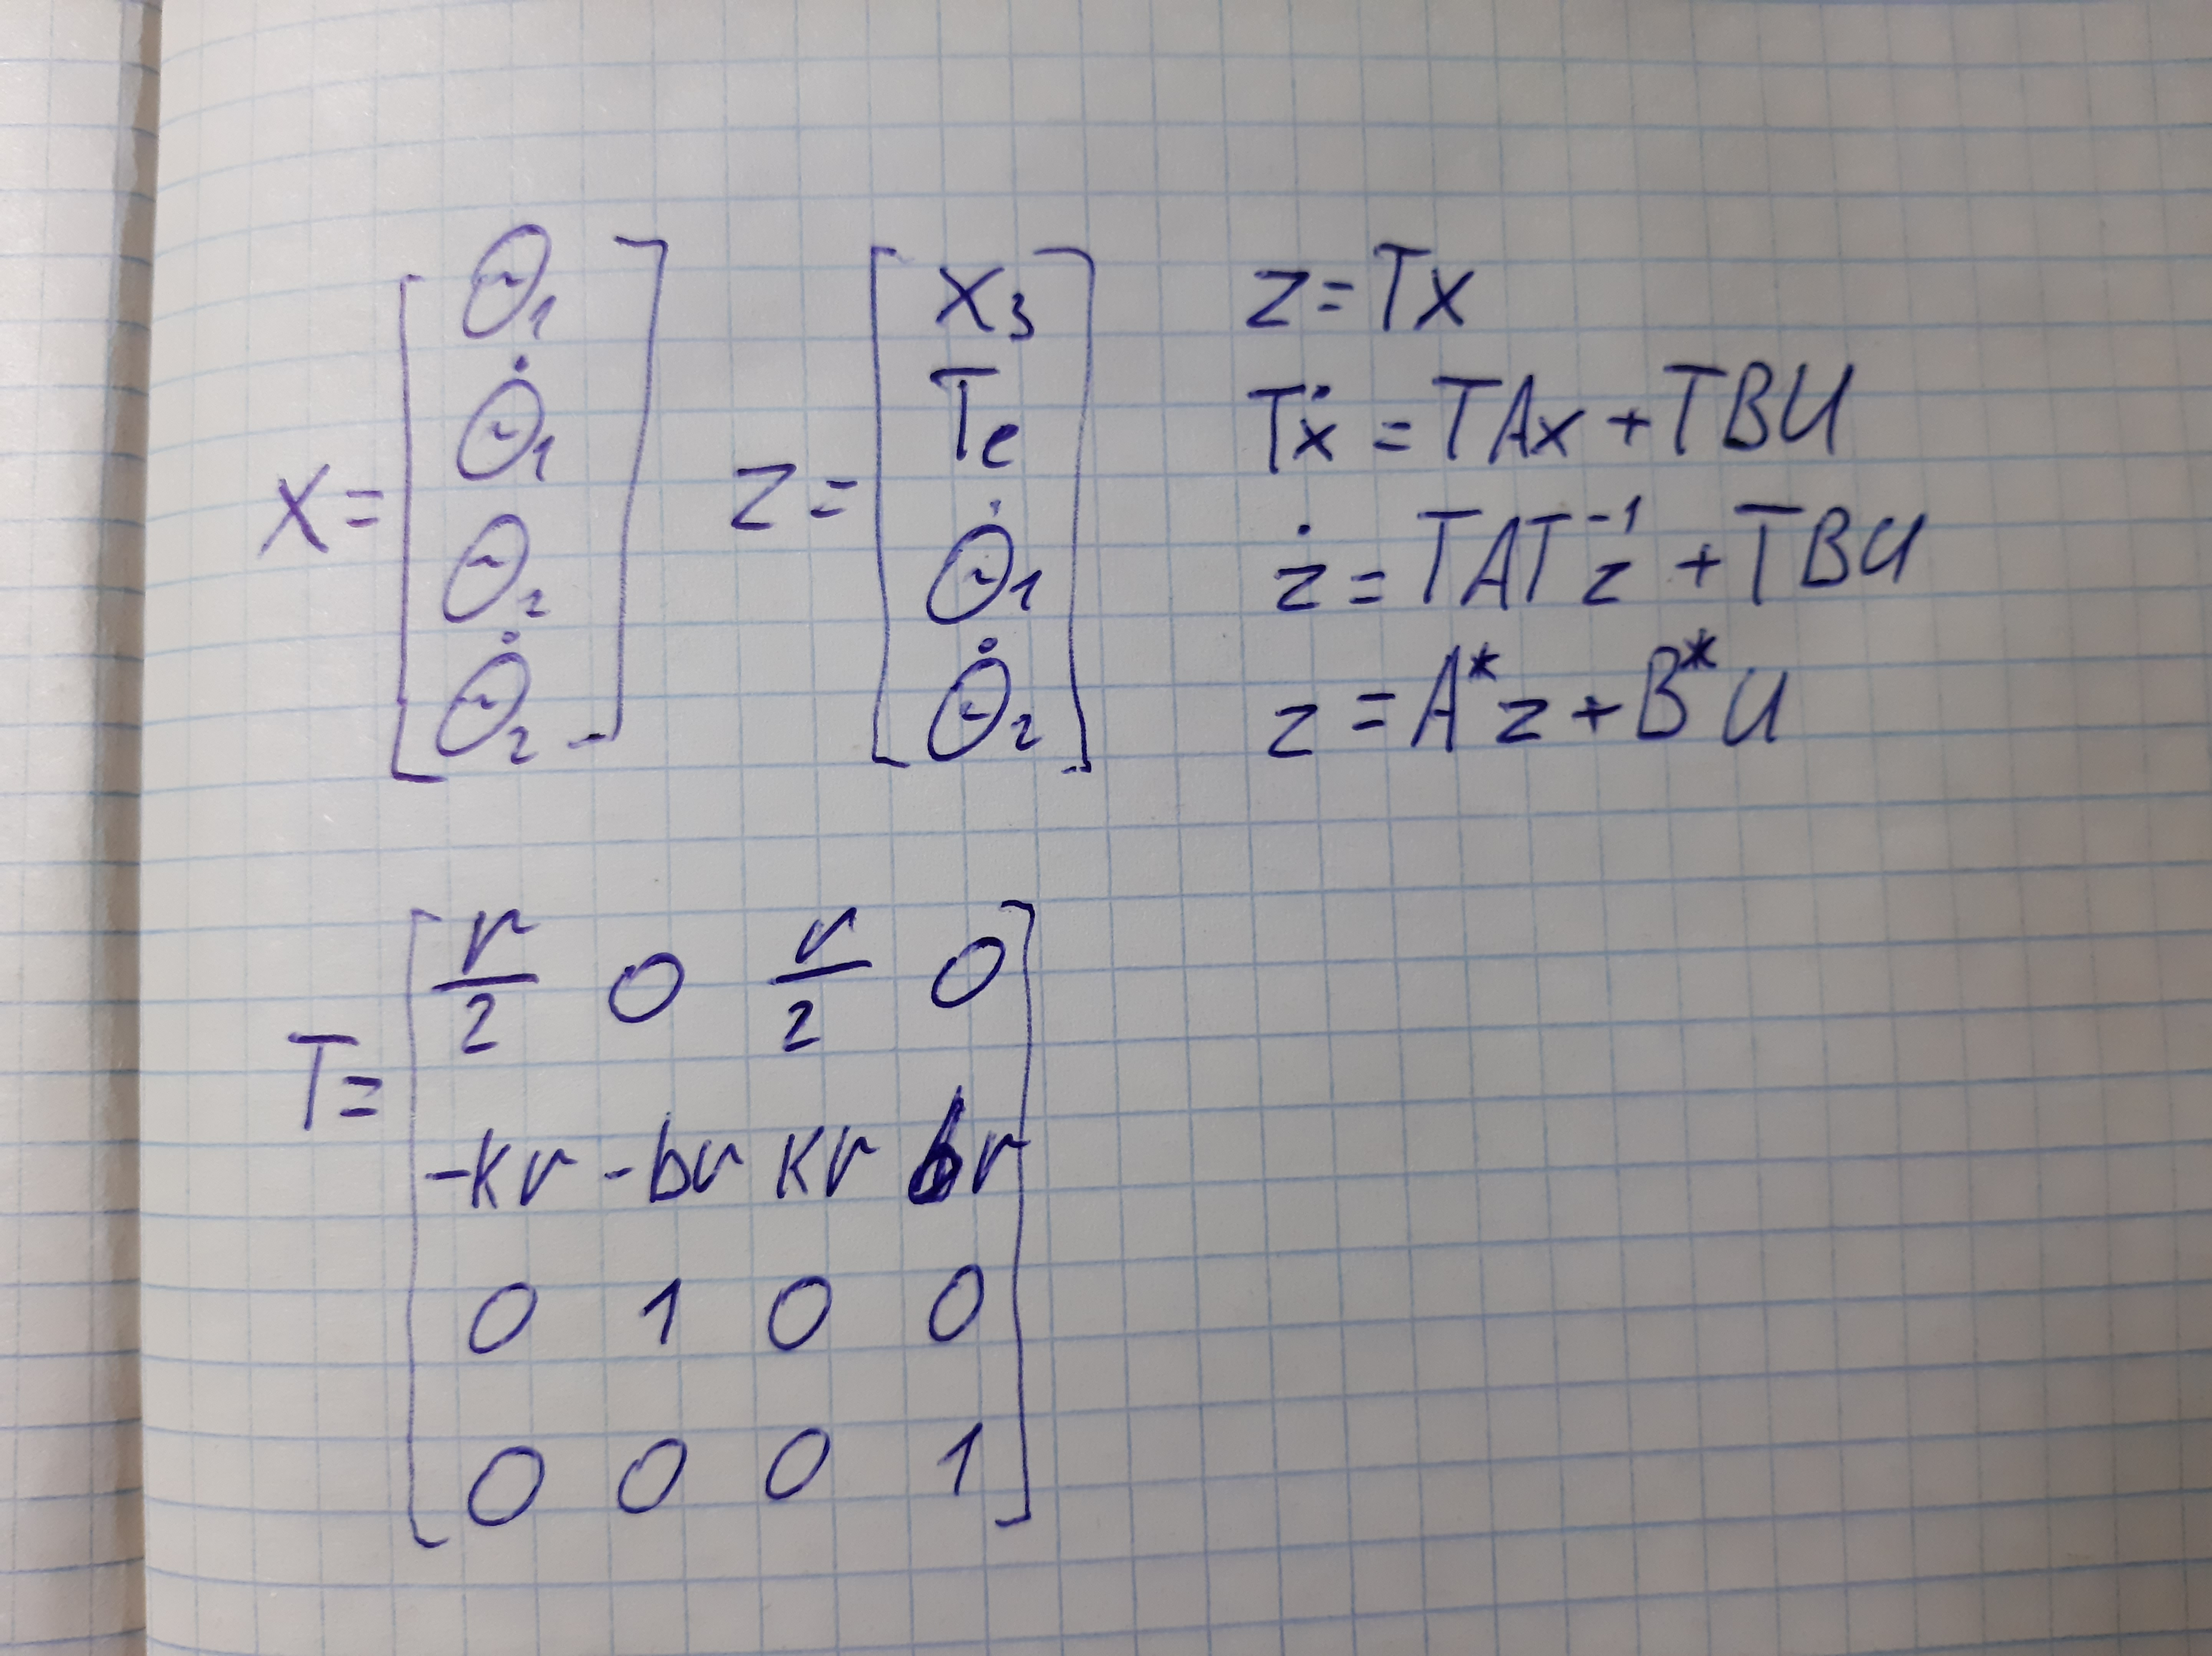 X = [ Θ₁ Θ̇₁ Θ₂ Θ̇₂ ]
Z = [ X₃ Te Θ̇₁ Θ̇₂ ]
z = Tx
Tẋ = TAx + TBU
ż = TAT⁻¹z + TBU
z = A*z + B*U
T = [
r/2 0 r/2 0
-kr -br kr br
0 1 0 0
0 0 0 1 ]